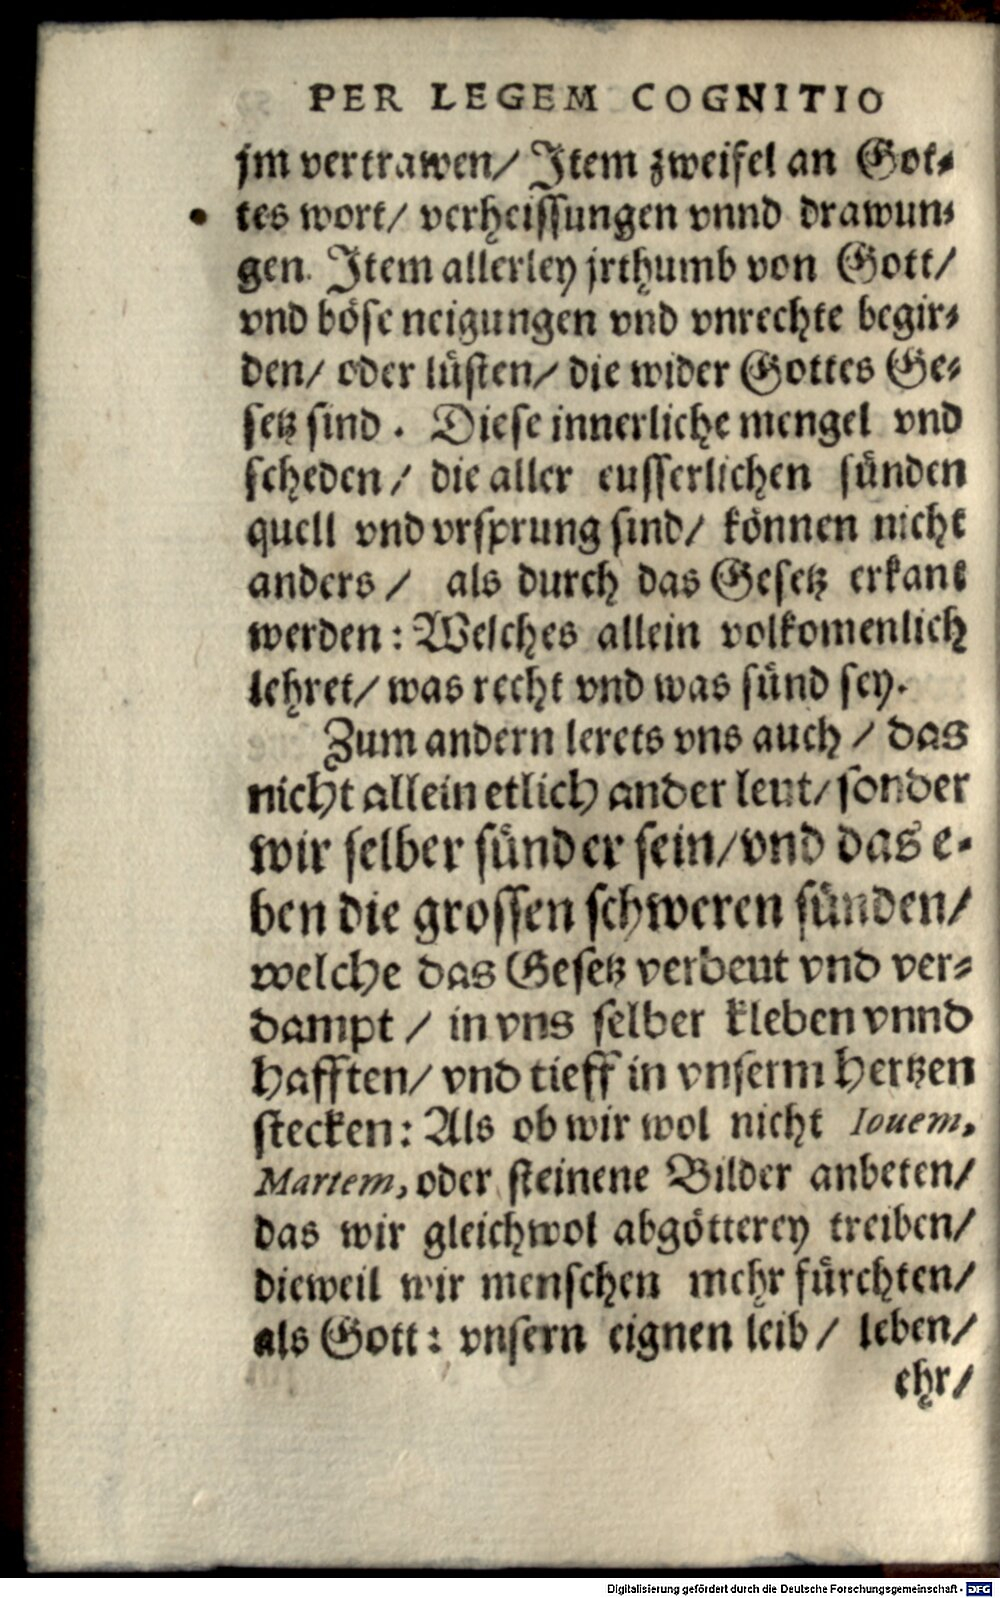 PER LEGEM COGNITIO
jm vertrawen/ Jtem zweifel an Got-
tes wort/ verheissungen vnnd drawun-
gen. Jtem allerley jrthumb von Gott/
vnd böse neigungen vnd vnrechte begir-
den/ oder lüsten/ die wider Gottes Ge-
setz sind. Diese innerliche mengel vnd
scheden/ die aller eusserlichen sünden
quell vnd vrsprung sind/ können nicht
anders/ als durch das Gesetz erkant
werden: Welches allein volkomenlich
lehret/ was recht vnd was sünd sey.
Zum andern lerets vns auch/ das
nicht allein etlich ander leut/ sonder
wir selber sünder sein/ vnd das e-
ben die grossen schweren sünden/
welche das Gesetz verbeut vnd ver-
dampt/ in vns selber kleben vnnd
hafften/ vnd tieff in vnserm Hertzen
stecken: Als ob wir wol nicht Iouem,
Martem, oder steinene Bilder anbeten/
das wir gleichwol abgötterey treiben/
dieweil wir menschen mehr fürchten/
als Gott: vnsern eignen leib/ leben/
ehr/
Digitalisierung gefördert durch die Deutsche Forschungsgemeinschaft - DFG